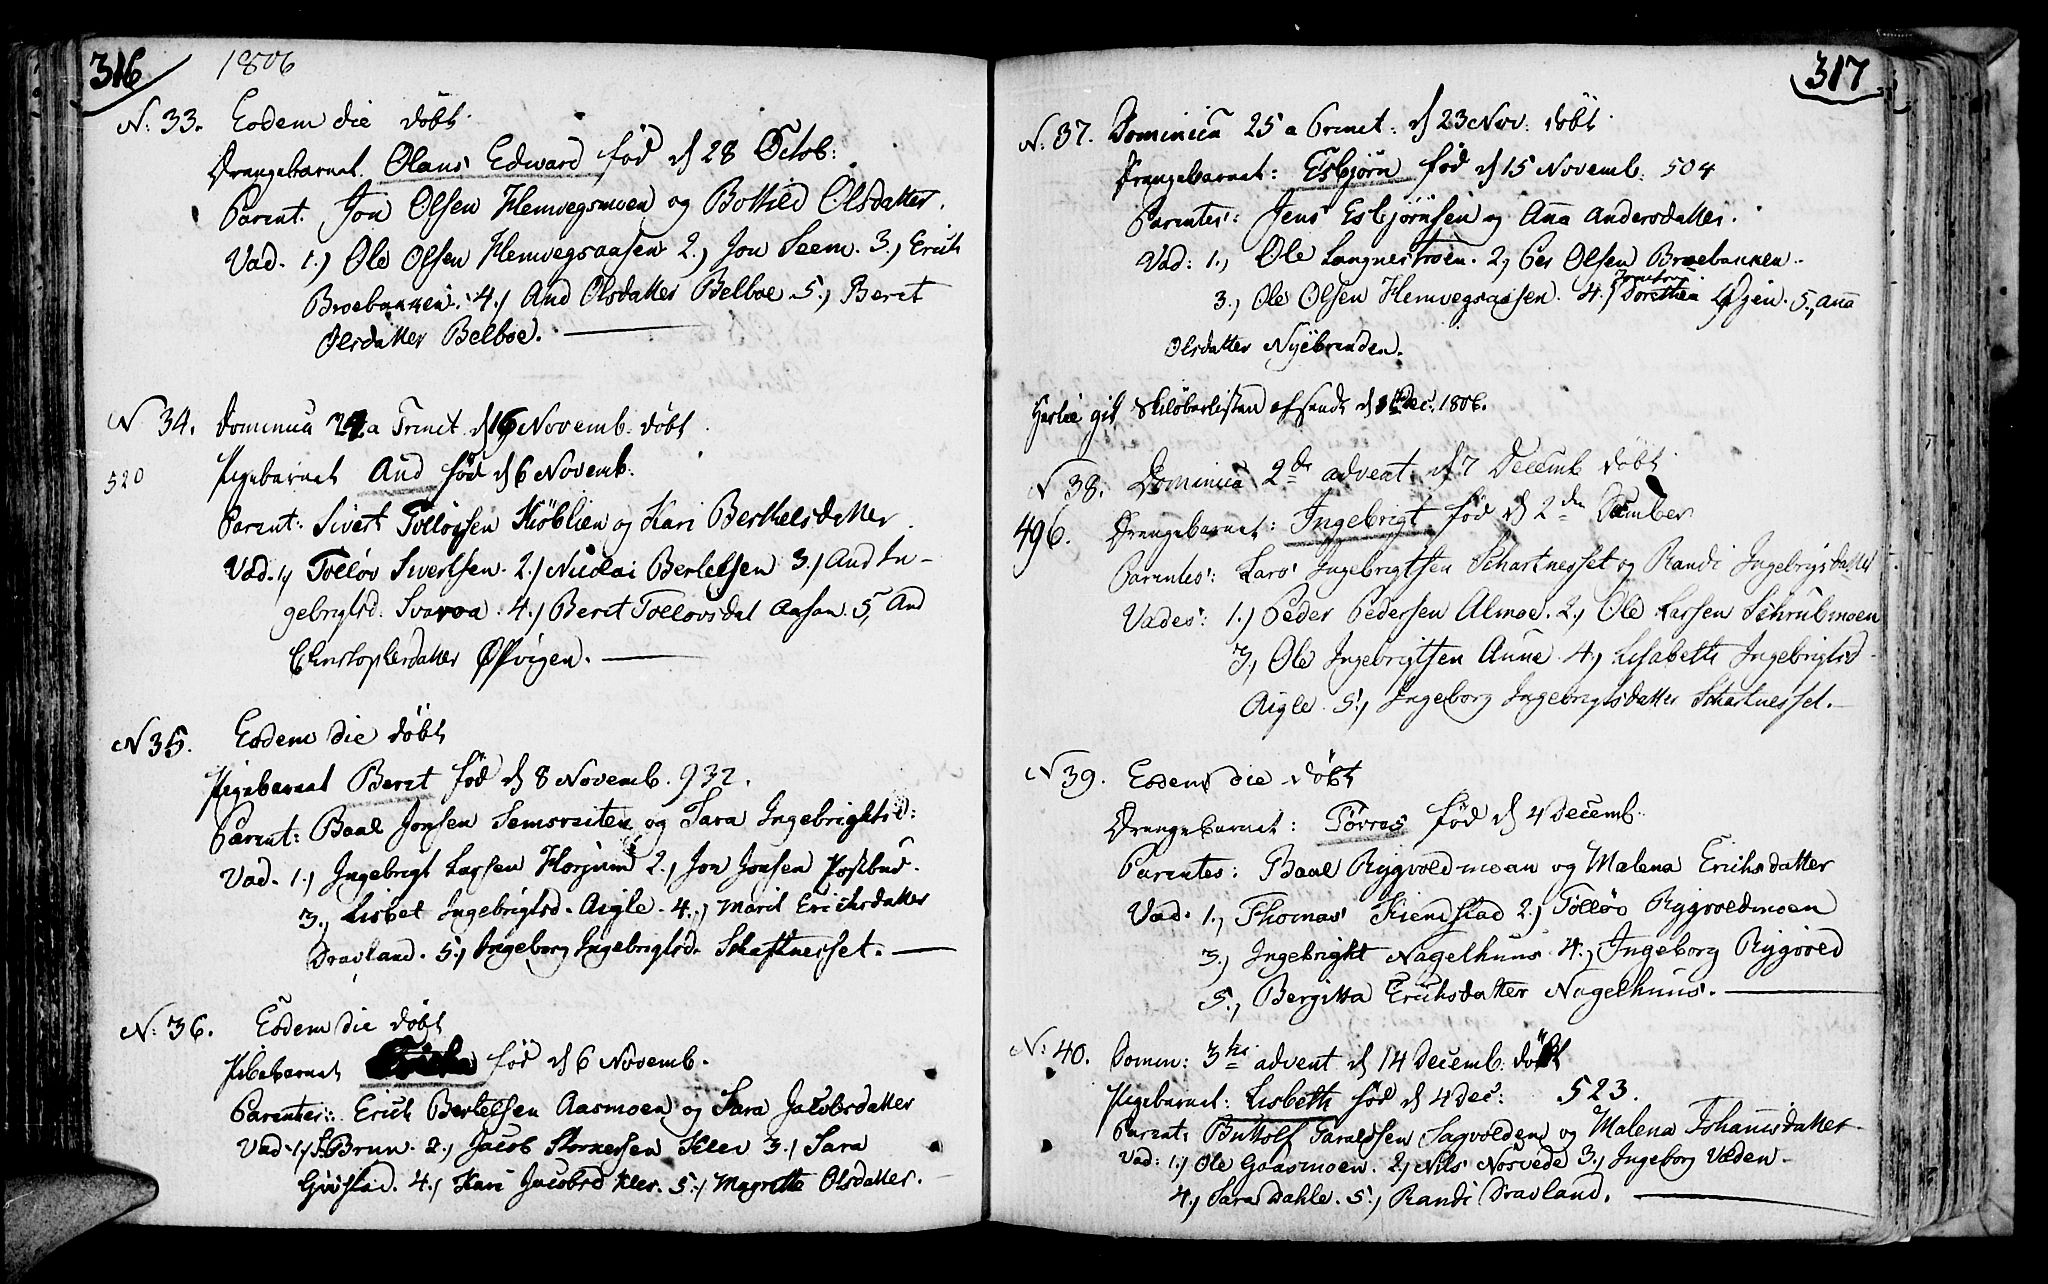 316 1806
N: 33. Eodem die döbt.
Drengebarnet. Olaus Edward föd d 28 Octob:
Parent. Jon Olsen Hemvegsmoen og Bothild Olsdatter.
Vad. 1.) Ole Olsen Hemvegsaasen 2.) Jon Seem. 3.) Erich
Broebannen. 4.) And Olsdatter Belboe 5.) Beret
Olsdatter Belboe.
N 34. Dominica 24 a Trinit. d 16 Novemb. döbt
520 Pigebarnet And föd d 6 Novemb:
Parent: Sivert Tolløvsen Kiöblien og Kari Berthelsdatter.
Vad. 1) Tolløv Sivertsen. 2.) Nicolai Bertelsen 3.) And In-
gebrigtsd. Svarva. 4.) Beret Tollovsdat Aasan. 5, And
Christophersdatter Øfvigen.
N 35. Eodem die döbt
Pigebarnet Beret föd d 8 Novemb. 932.
Parent: Baal Jonsen Semsveiten og Sara Ingebrightsd:
Vad. 1.) Ingebrigt Larsen Florjum 2.) Jon Jonsen Postbud.
3.) Lisbet Ingebrigtsd. Aigle. 4.) Marit Erichsdatter
Dravland. 5.) Ingeborg Ingebrigtsd. Schartnesset.
N: 36. Eodem die döbt
Pibebarnet föd d 6 Novemb.
Parenter: Erich Bertelsen Aasmoen og Sara Jacobsdatter
Vad. 1.) Brun. 2.) Jacob Klev 3.) Sara
4.) Kari Jacobsd Klev. 5.) Magrethe Olsdatter.
317
N: 37. Dominica 25 a Trinit: d 23 Nov: döbt.
Drengebarnet: Esbjörn föd d 15 Novemb: 504
Parentes: Jens Esbjörnsen og Aña Andersdatter.
Vad: 1.) Ole Langnestroen. 2.) Per Olsen Broebannen.
3.) Ole Olsen Hemvegsaasen. 4.) Dorethea Øjen. 5.) Aña
Olsdatter Nyebrenden.
gik afsendt d 1 Dec. 1806.
N 38. Dominica 2de advent d 7 Decemb döbt.
496. Drengebarnet: Ingebrigt föd d 2den December
Parentes: Lars Ingebrigtsen Schartnesset og Randi Ingebrigsdatter
Vades: 1.) Peder Pedersen Almoe. 2.) Ole Larsen Schrubmoen
3.) Ole Ingebrigtsen Aune. 4.) Lisabeth Ingebrigtsd
Aigle. 5.) Ingeborg Ingebrigtsdatter Schartnesset.
N 39. Eodem die döbt
Drengebarnet: Törres föd d 4 Decemb.
Parentes: Baal Rygvoldmoen og Malena Erichsdatter
Vad. 1.) Thomas Kiemstad 2.) Tolløv Rygvoldmoen
3.) Ingebright Nagelhuus 4.) Ingeborg Rygvold
5.) Bergitta Erichsdatter Nagelhuus.
N: 40. Domin: 3tie advent d 14 Decemb. döbt
Pigebarnet: Lisbeth föd d 4 Dec: 523.
Parent: Buttolf Taraldsen Sagvolden og Malena Johannisdatter
Vad: 1.) Ole Gaasmoen. 2.) Nils Nosvede 3.) Ingeborg Volden.
4.) Sara Dahle. 5.) Randi Dravland.